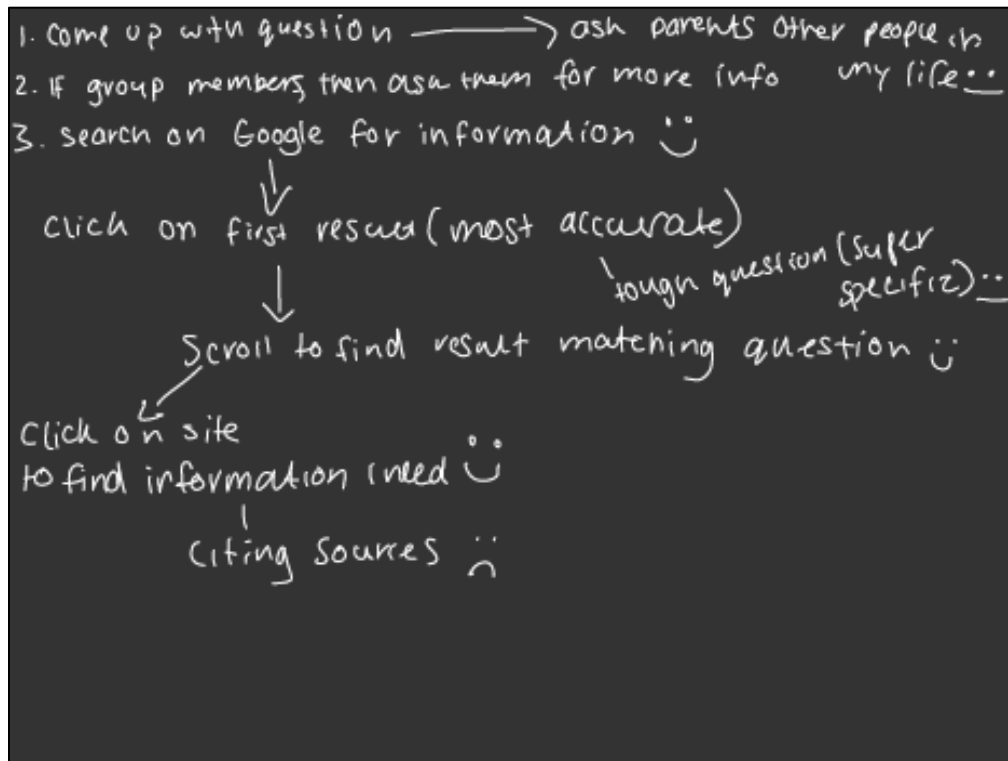 1. Come up with question → ask parents other people in
my life
2. If group members, then ask them for more info
3. Search on Google for information
Click on first result (most accurate)
tough question (super
specific)
Scroll to find result matching question
Click on site
to find information i need
Citing sources